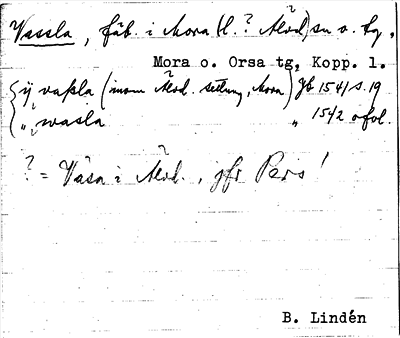 Vassla, fäb. i Mora (l. ? Älvd.) sn o. tg.
Mora o. Orsa tg, Kopp. l.
ÿ vaßla (inom Älvd. setlung, Mora) Jb 1541 s. 19
" wasla " 1542 ofol.
? = Våsa i Älvd., jfr Pers!
B. Lindén